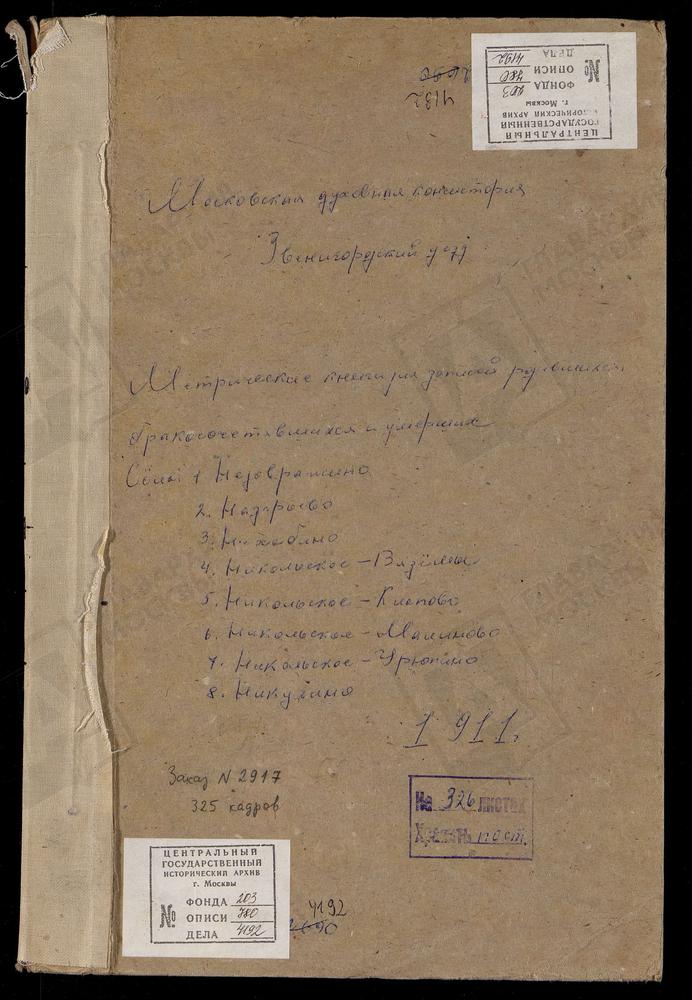 2690
4192
ЦЕНТРАЛЬНЫЙ
ГОСУДАРСТВЕННЫЙ
ИСТОРИЧЕСКИЙ АРХИВ
г. Москвы
№
ФОНДА 203
ОПИСИ 780
ДЕЛА 4192
Московская духовная консистория
Звенигородский уезд
Метрические книги для записей родившихся,
бракосочетавшихся и умерших
Села 1 Незовражино
2. Назарьево
3. Нахабино
4. Никольское-Вязёмы
5. Никольское-Клопово
6. Никольское-Малиново
7. Никольское-Урюпино
8. Никулино
1911г
Заказ N 2917
325 кадров
На 326 листах
Хранить пост.
ЦЕНТРАЛЬНЫЙ
ГОСУДАРСТВЕННЫЙ
ИСТОРИЧЕСКИЙ АРХИВ
г. Москвы
№
ФОНДА 203
ОПИСИ 780
ДЕЛА 4192
4192
2690